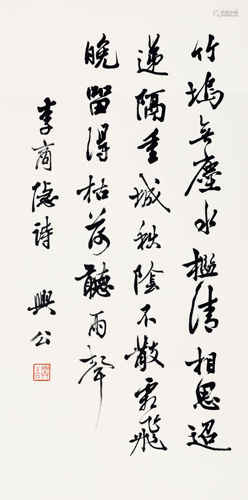 竹塢無塵水檻清相思迢
遞隔重城秋陰不散霜飛
晚留得枯荷聽雨聲
李商隱詩 興公